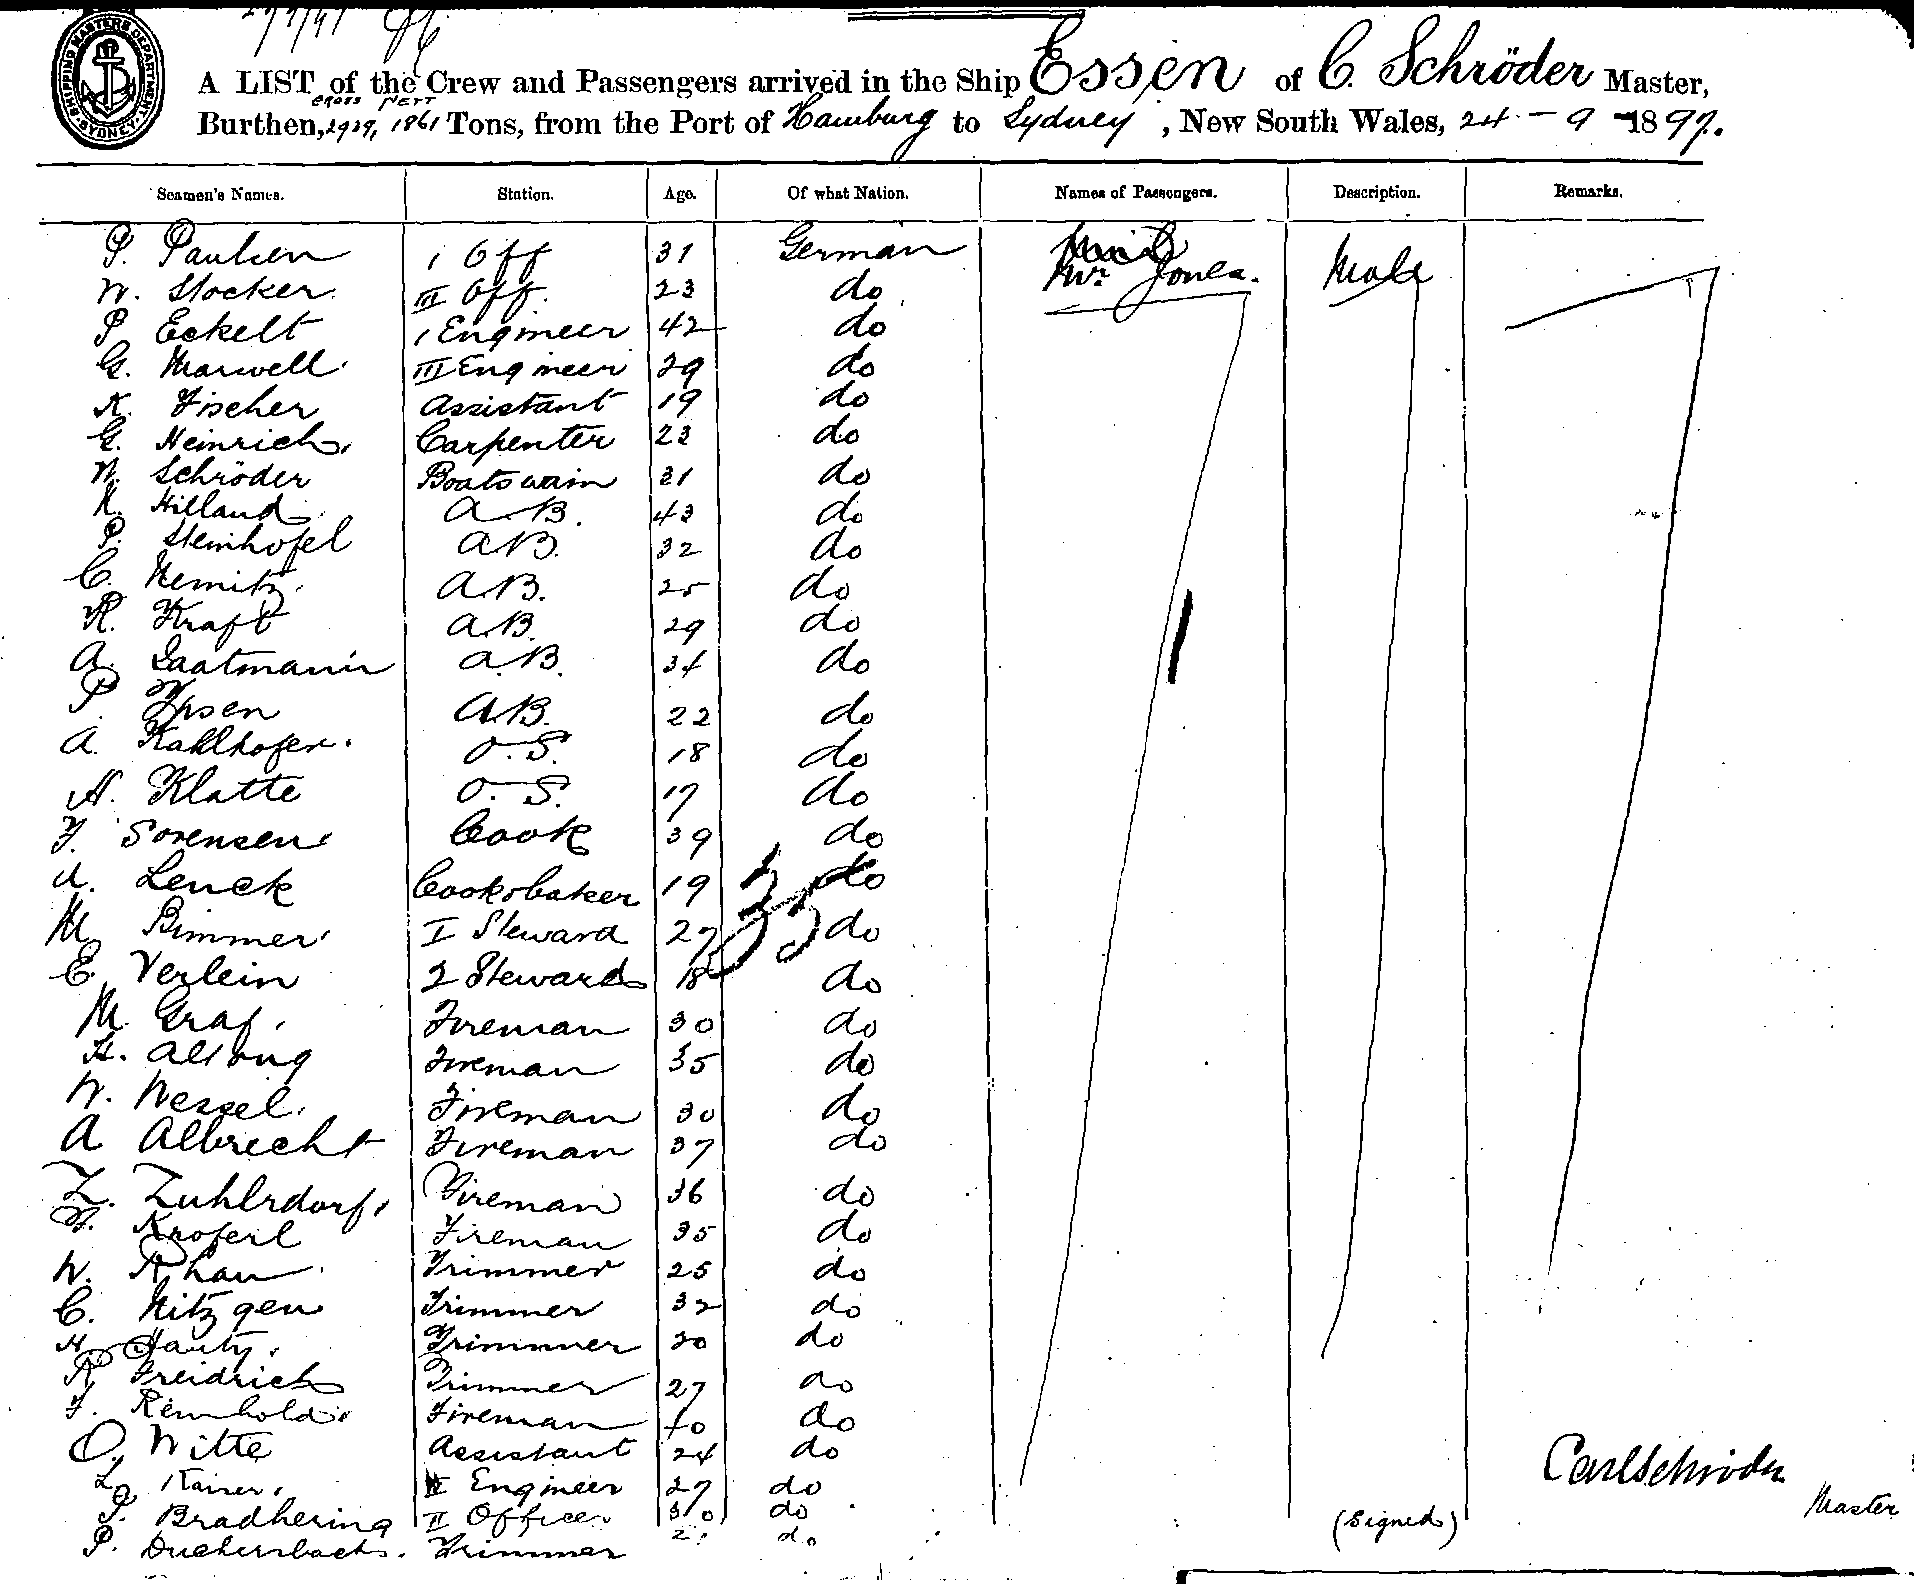 27/9/97
SHIPPING MASTERS DEPARTMENT SYDNEY
A LIST of the Crew and Passengers arrived in the Ship Essen of C. Schröder Master,
GROSS NETT
Burthen, 2929, 1861 Tons, from the Port of Hamburg to Sydney, New South Wales, 24 - 9 - 1897.
Seamen's Names. Station. Age. Of what Nation. Names of Passengers. Description. Remarks.
P. Paulsen 1 Off 31 German Mr. Jones. Male
W. Stocker. III Off. 23 do
P Eckelt 1 Engineer 42 do
G. Marwell. III Engineer 29 do
K. Fischer Assistant 19 do
G. Heinrich. Carpenter 23 do
W. Schröder Boatswain 31 do
H. Hilland. A.B. 43 do
P. Steinhofel A.B. 32 do
C. Nemitz. A.B. 25 do
R. Kraft A.B. 29 do
A. Saatmann A.B. 34 do
P. Ypsen A.B. 22 do
A. Kahlhofer. O.S. 18 do
H. Klatte O.S. 17 do
F. Sorensen Cook 39 do
A. Lenck Cook & baker 19 do
35
M Bimmer I Steward 27 do
E. Verlein 2 Steward 18 do
M Graf. Fireman 30 do
H. Fireman 35 do
W. Wessel. Fireman 30 do
A Albrecht Fireman 37 do
Z. Zuhlsdorf. Fireman 36 do
Fireman 35 do
W. Rhau Trimmer 25 do
C. Nitzgen Trimmer 32 do
H. Trimmer 20 do
R. Freidrich Trimmer 27 do
F. Reinhold. Fireman 40 do
O. Witte Assistant 24 do
L. Kaiser. II Engineer 27 do
Bradhering II Officer 30 do
P. Trimmer do
Carl Schröder
Master
(Signed)